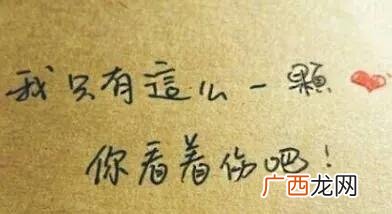 我只有這么一顆❤
你看着伤吧！
广西龙网